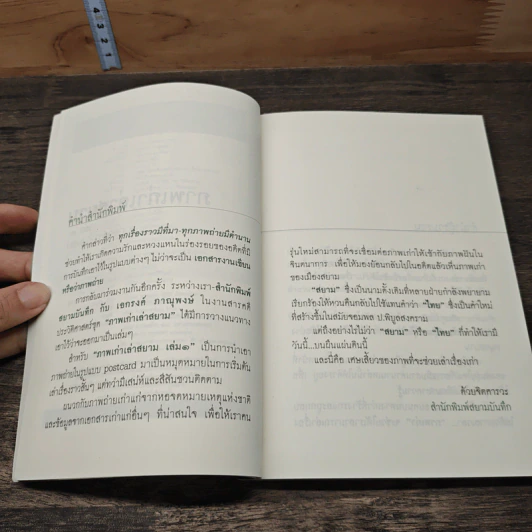 คำนำสำนักพิมพ์
คำกล่าวที่ว่า ทุกเรื่องราวมีที่มา-ทุกภาพถ่ายมีตำนาน
ช่วยทำให้เราเกิดความรักและหวงแหนในร่องรอยของอดีตที่มี
การบันทึกเอาไว้ในรูปแบบต่างๆ ไม่ว่าจะเป็น เอกสารงานเขียน
หรือว่าภาพถ่าย
การกลับมาร่วมงานกันอีกครั้ง ระหว่างเรา-สำนักพิมพ์
สยามบันทึก กับ เอกรงค์ ภาณุพงษ์ ในงานสารคดี
ประวัติศาสตร์ชุด "ภาพเก่าเล่าสยาม" ได้มีการวางแนวทาง
เอาไว้ว่าจะออกมาเป็นเล่มๆ
สำหรับ "ภาพเก่าเล่าสยาม เล่ม๑" เป็นการนำเอา
ภาพถ่ายในรูปแบบ postcard มาเป็นหมุดหมายในการเริ่มต้น
เล่าเรื่องราวสั้นๆ แต่ทว่ามีเสน่ห์และสีสันชวนติดตาม
ผนวกกับภาพถ่ายเก่าแก่จากหอจดหมายเหตุแห่งชาติ
และข้อมูลจากเอกสารเก่าแก่อื่นๆ ที่น่าสนใจ เพื่อให้เราคน
รุ่นใหม่สามารถที่จะเชื่อมต่อภาพเก่าให้เข้ากับภาพฝันใน
จินตนาการ เพื่อให้มองย้อนกลับไปในอดีตแล้วเห็นภาพเก่า
ของเมืองสยาม
"สยาม" ซึ่งเป็นนามดั้งเดิมที่หลายฝ่ายกำลังพยายาม
เรียกร้องให้หวนคืนกลับไปใช้แทนคำว่า "ไทย" ซึ่งเป็นคำใหม่
ที่สร้างขึ้นในสมัยจอมพล ป.พิบูลสงคราม
แต่ถึงอย่างไรไม่ว่า "สยาม" หรือ "ไทย" ก็ทำให้เรามี
วันนี้...บนผืนแผ่นดินนี้
และนี่คือ เศษเสี้ยวของภาพที่จะช่วยเล่าเรื่องเก่า
ด้วยจิตคารวะ
สำนักพิมพ์สยามบันทึก
4 3 2